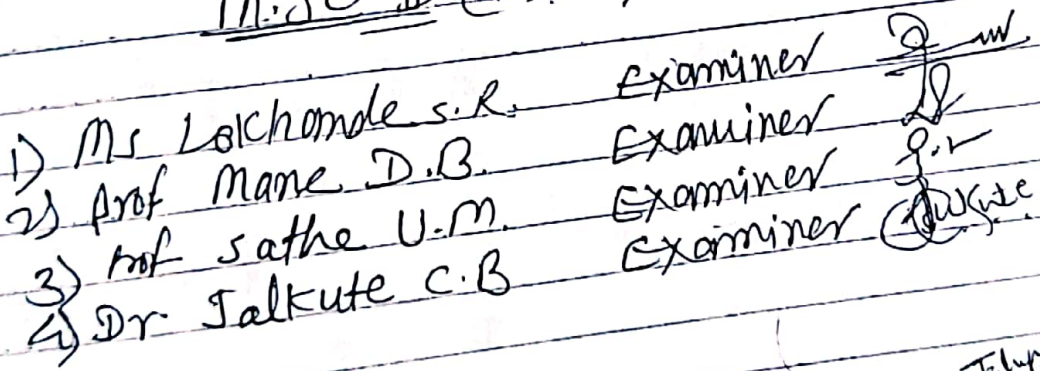 1) Ms Lokhande S.R. Examiner
2) Prof Mane D.B. Examiner
3) Prof Sathe U.M. Examiner
4) Dr Jalkute C.B Examiner